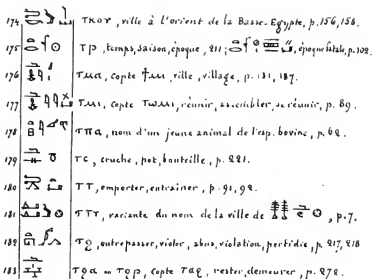 174 ⲧⲕⲟⲩ, ville à l'orient de la Basse-Egypte, p. 156, 158.
175 ⲧⲣ, temps, saison, époque, 211; époque fatale, p. 102.
176 ⲧⲙⲁ, copte ϯⲙⲓ, ville, village, p. 131, 187.
177 ⲧⲙⲓ, copte ⲧⲱⲙⲓ, réunir, assembler, se réunir, p. 89.
178 ⲧⲡⲁ, nom d'un jeune animal de l'esp. bovine, p. 62.
179 ⲧⲥ, cruche, pot, bouteille, p. 221.
180 ⲧⲧ, emporter, entraîner, p. 91, 92.
181 ⲧⲧⲩ, variante du nom de la ville de, p. 7.
182 ⲧϩ, outrepasser, violer, abus, violation, perfidie, p. 217, 218
183 ⲧϩⲁ ou ⲧϩⲣ, copte ⲧⲁϩ, rester, demeurer, p. 272.